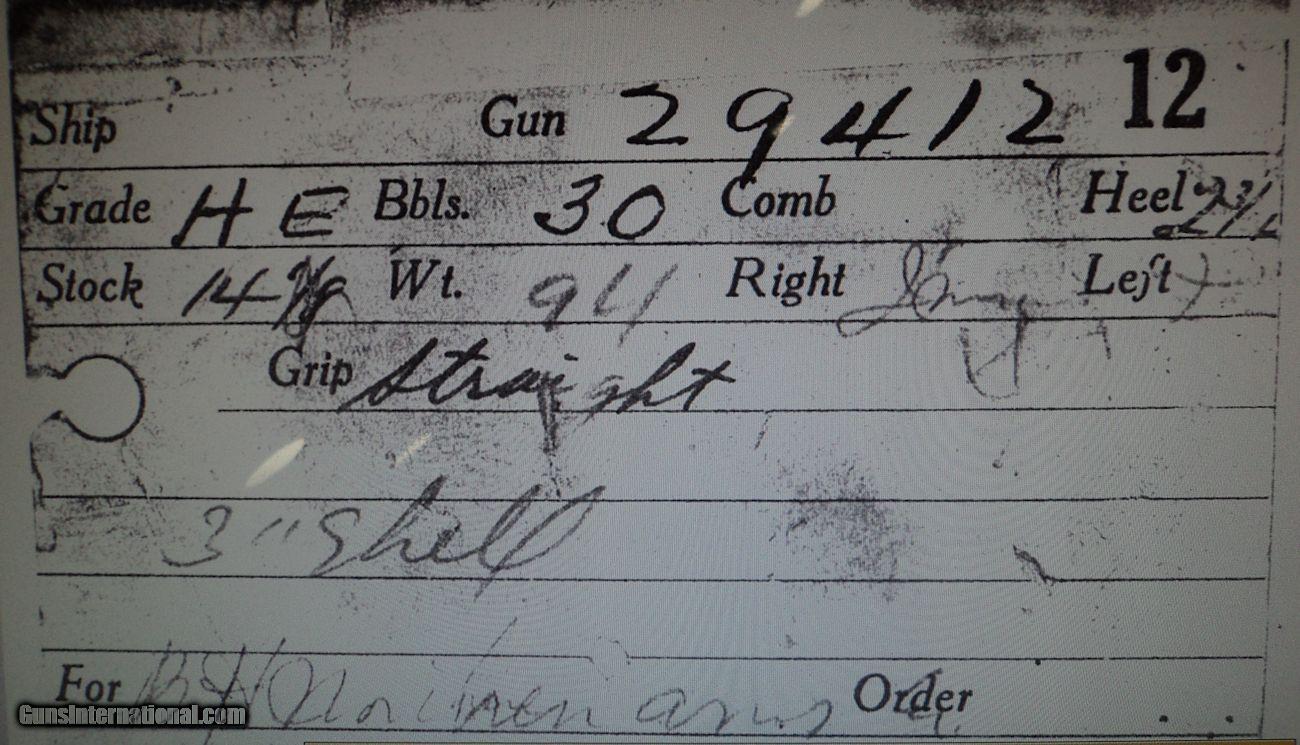 Ship Gun 29412 12
Grade HE Bbls. 30 Comb Heel
Stock 14 Wt. 94 Right Left
Grip Straight
3" Shell
For Order
GunsInternational.com